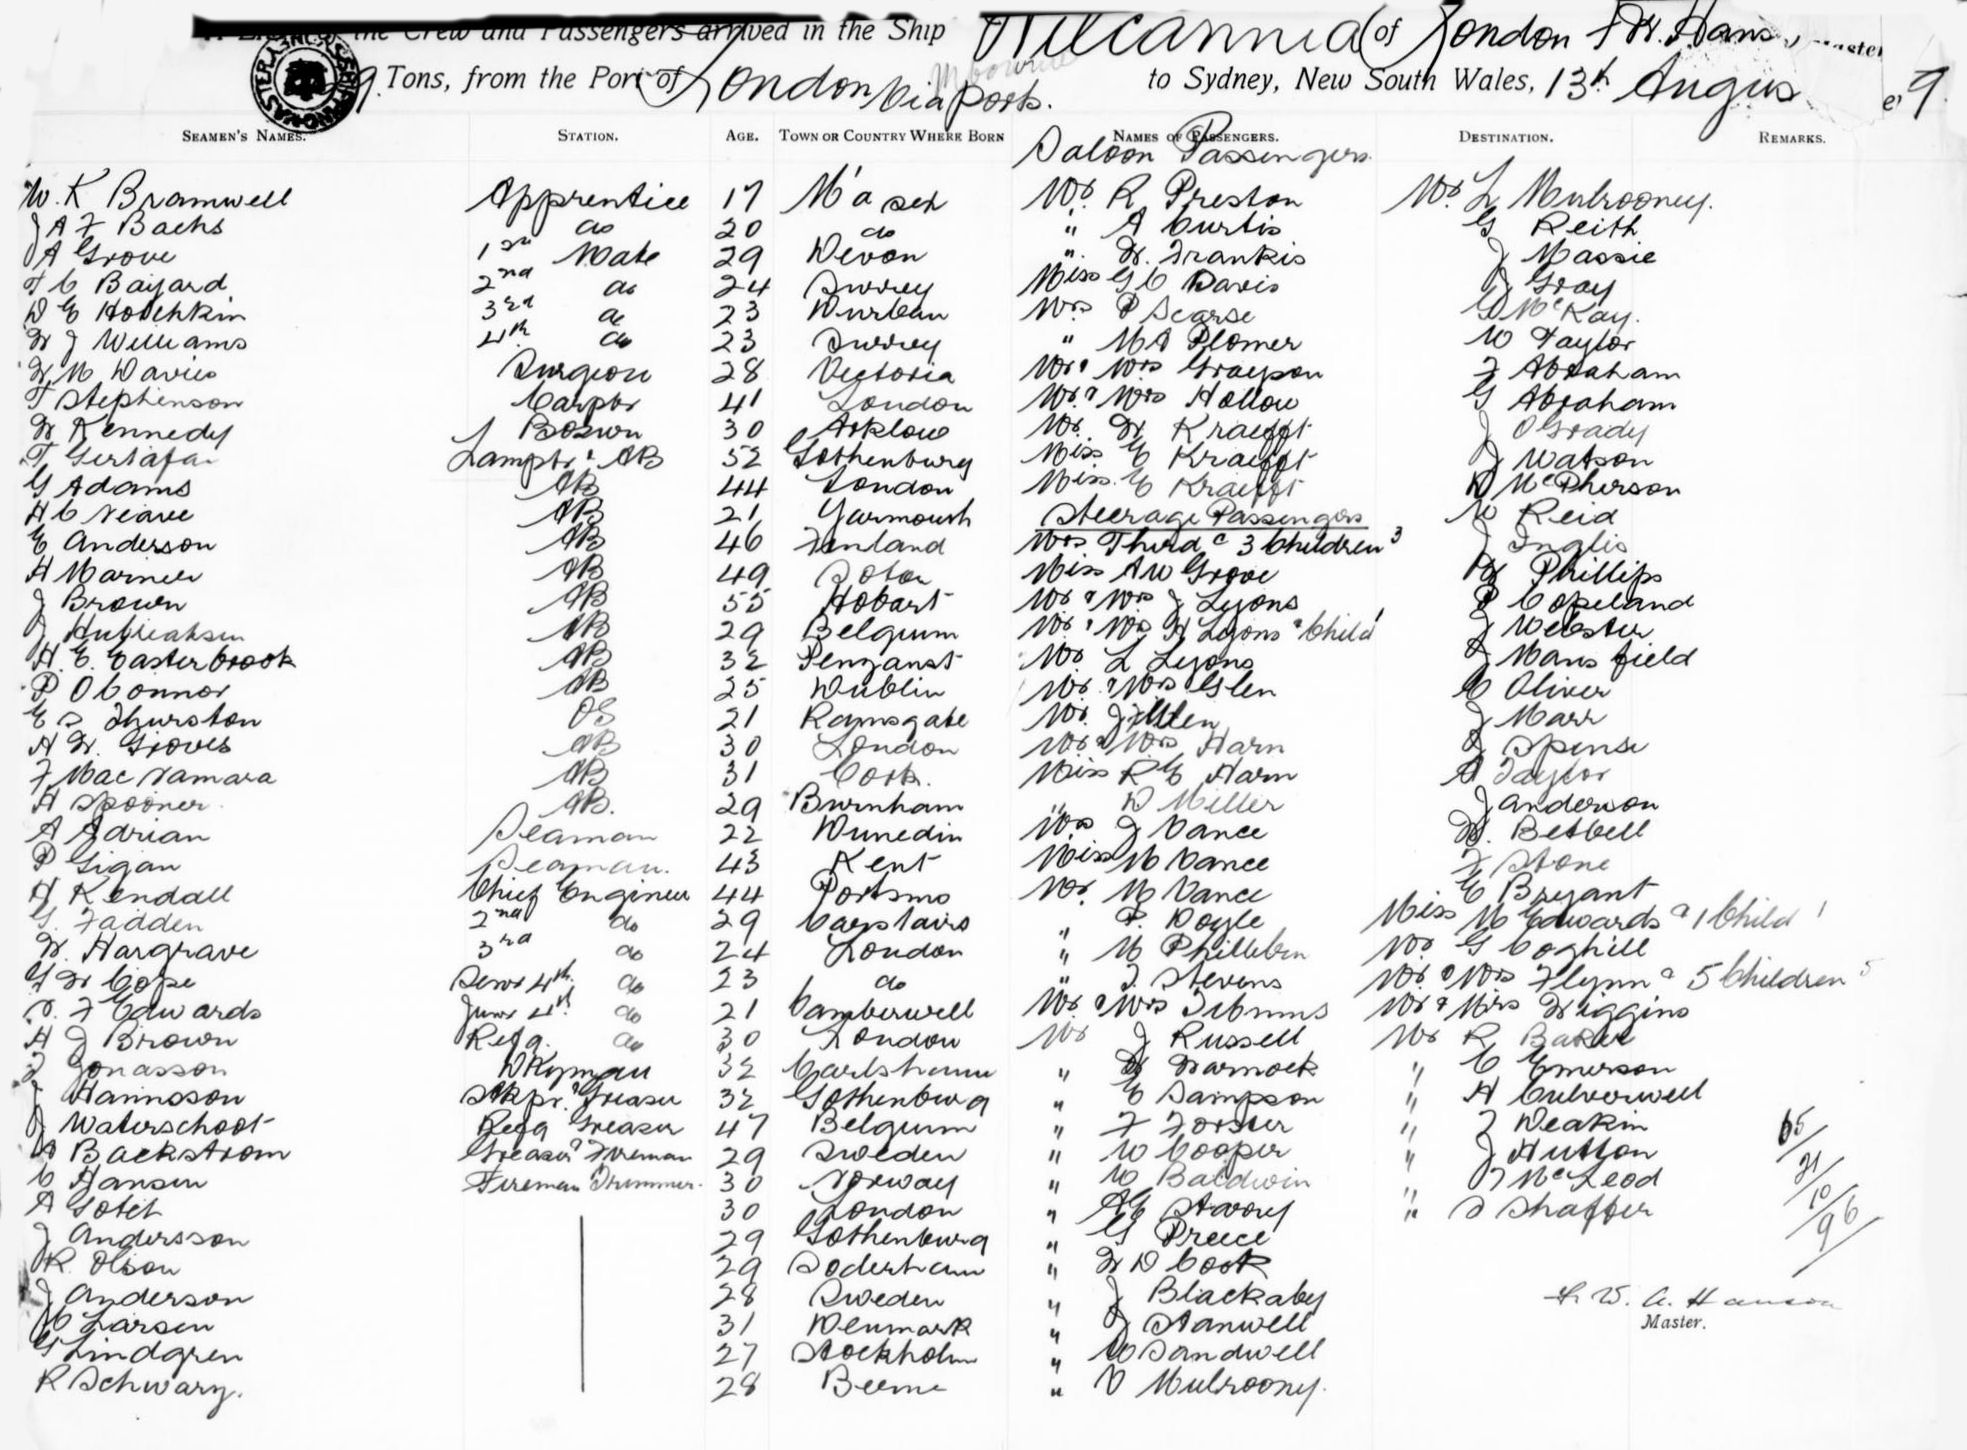 the Crew and Passengers arrived in the Ship Wilcannia of London
Tons, from the Port of London Via Ports. to Sydney, New South Wales, 13th Augus
SEAMEN'S NAMES. STATION. AGE. TOWN OR COUNTRY WHERE BORN NAMES OF PASSENGERS. DESTINATION. REMARKS.
Saloon Passengers
W. K Bramwell Apprentice 17 Mr. R Preston Mr. L Mulrooney.
J A F Backs do 20 do " A Curtis G Reith
A Grove 1st Mate 29 Devon " W. Frankis J Massie
F C Bayard 2nd do 24 Surrey Miss G C Davis J Gray
D E Hotchkin 3rd do 23 Durban Mrs P Scarse G McKay.
W J Williams 4th do 23 Surrey " M A Plomer W Taylor
W M Davies Surgeon 28 Victoria Mr & Mrs Grayson F Abraham
T Stephenson Carptr 41 London Mr. & Mrs Hollow G Abraham
W Kennedy Boswn 30 Arklow Mr. W Kraefft J O Grady
T Lamptr & AB 52 Gothenburg Miss E Kraefft J Watson
G Adams AB 44 London Miss. E Kraefft D McPherson
H C Neave AB 21 Yarmouth Steerage Passengers W Reid
E Anderson AB 46 Finland Mrs Third & 3 Children 3 J Inglis
H Mariner AB 49 Miss A W Grove W Phillips
J Brown AB 55 Hobart Mr & Mrs J Lyons P Copeland
J AB 29 Belgium Mr & Mrs H Lyons & Child 1 J Webster
H. E. Easterbrook AB 32 Penzanst Mr L Lyons J Mansfield
P O Connor AB 25 Dublin Mr. & Mrs Glen C Oliver
E S Thurston OS 21 Ramsgate Mr. J Glen J Marr
H W. Groves AB 30 London Mr & Mrs Harn J Spense
F Mac Namara AB 31 Cork. Miss R E Harn A Taylor
H Spooner AB. 29 Burnham " D Miller J Anderson
A Adrian Seaman 22 Dunedin Mrs J Vance W. Betbell
P Gigan Seaman. 43 Kent Miss M Vance F Stone
H Kendall Chief Engineer 44 Portsmo Mr. M Vance E Bryant
G. Fadden 2nd do 29 Carstairs " P. Doyle Miss M Edwards & 1 Child 1
W. Hargrave 3rd do 24 London " M Phillibin Mr G Coghill
G W Cope Senr 4th do 23 do " J. Stevens Mr & Mrs Flynn & 5 Children 5
F Edwards Junr 4th do 21 Camberwell Mr & Mrs Timms Mr & Mrs Wiggins
H J Brown Refg. do 30 London Mr J Russell Mr R Baker
J Jonasson Dkyman 32 Carlshamn " W Warnock " C Emerson
J Hannsson Stkpr. & Greaser 32 Gothenburg " E Sampson " H Culverwell
J Waterschoot Refg Greaser 47 Belgium " F Forster " J Deakin 65
A Backstrom Greaser & Fireman 29 Sweden " W Cooper " J Hutton 21
C Hansen Fireman Trimmer. 30 Norway " W Baldwin " J McLeod 10
A Gotch 30 London " A E Stavory " S Shaffer 96
J Andersson 29 Gothenburg " G Preece
R. Olson 29 Soderhamn " W D Cook
J Anderson 28 Sweden " J Blackaby
C Larsen 31 Denmark " J Stanwell
G Lindgren 27 Stockholm " W Sandwell
R Schwarz. 28 " V Mulrooney.
Master.